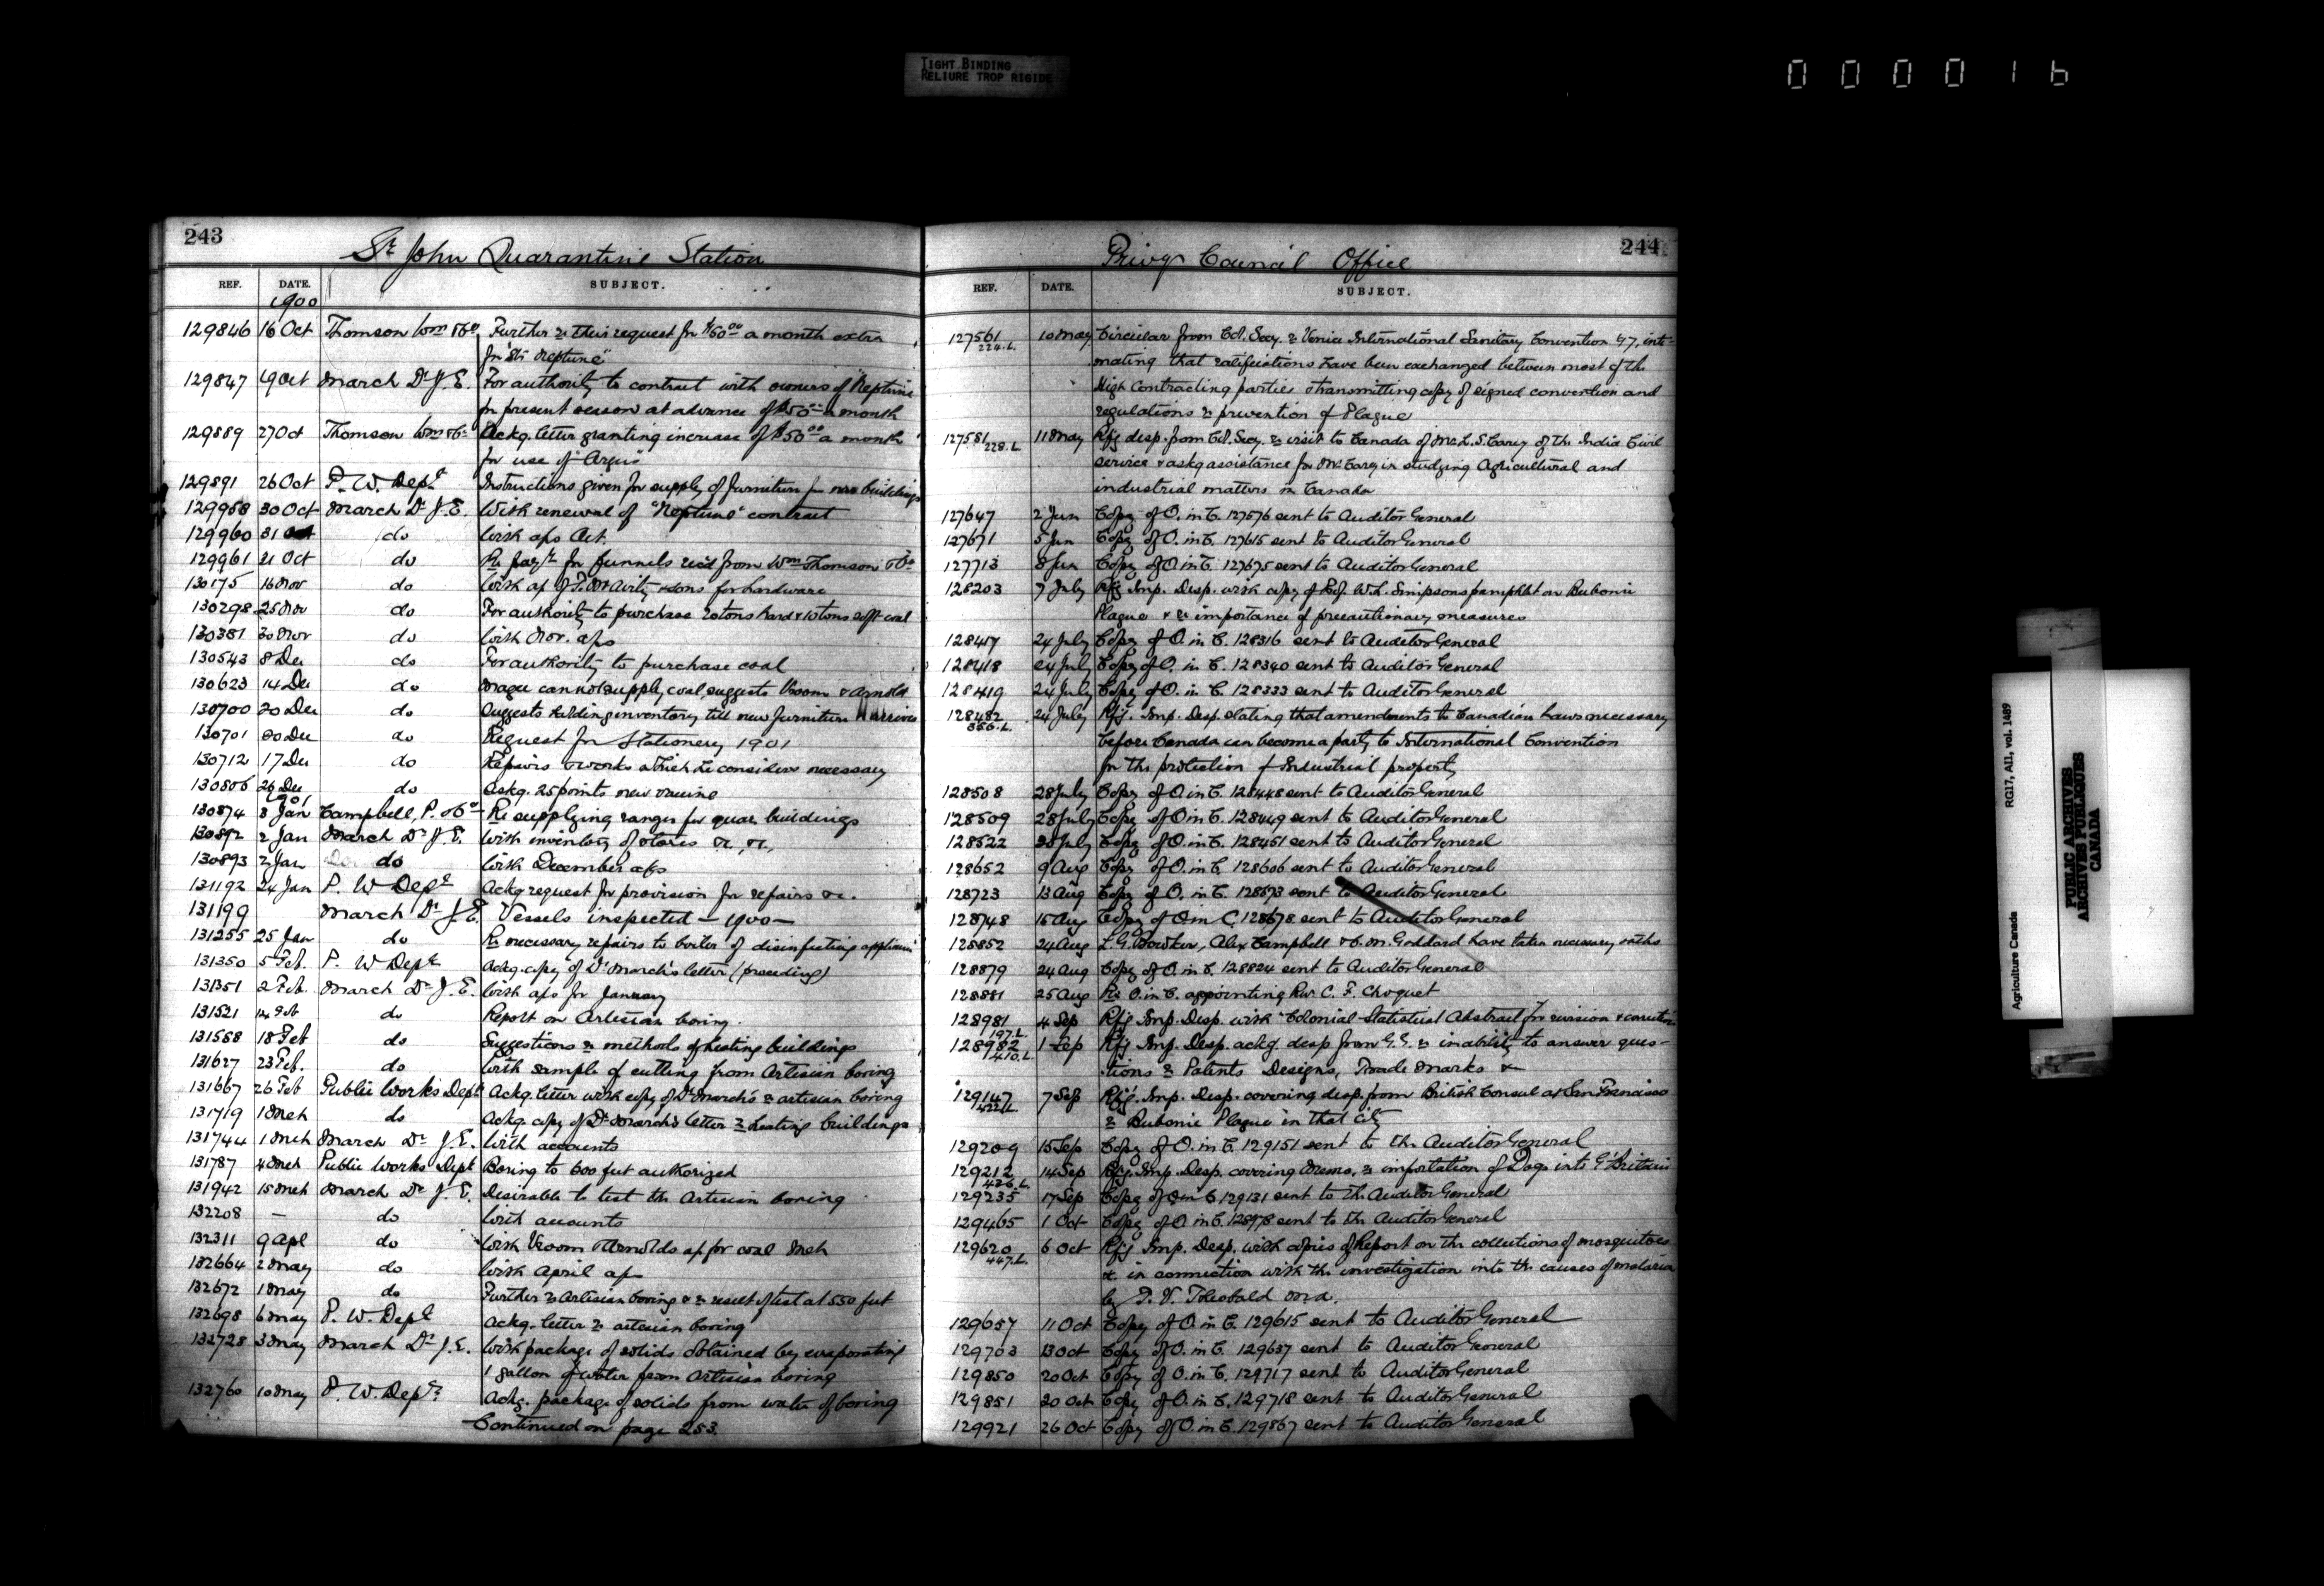 TIGHT BINDING
RELIURE TROP RIGIDE
000016
243
St John Quarantine Station
REF. DATE. SUBJECT.
1900
129846 16 Oct Thomson Wm & Co Further re their request for $50.00 a month extra
for "Str Neptune"
129847 19 Oct March Dr J. E. For authority to contract with owners of Neptune
for present season at advance of $50.00 a month
129889 27 Oct Thomson Wm & Co Ackg. letter granting increase of $50.00 a month
for use of "Argus"
129891 26 Oct P. W. Dept Instructions given for supply of furniture for new buildings
129958 30 Oct March Dr J. E. With renewal of "Neptune" contract
129960 31 Oct do With aps Oct.
129961 21 Oct do Re payt for funnels recd from Wm Thomson & Co
130175 16 Nov do With ap of T. McAvity & Sons for hardware
130298 25 Nov do For authority to purchase 20 tons hard & 10 tons soft coal
130381 30 Nov do With Nov. aps
130543 8 Dec do For authority to purchase coal
130623 14 Dec do Magee cannot supply coal, suggests Vroom & Arnold
130700 20 Dec do Suggests holding inventory till new furniture arrives
130701 20 Dec do Request for Stationery 1901
130712 17 Dec do Repairs & works which he considers necessary
130806 26 Dec do Ackg. 25 points new vaccine
1901
130874 3 Jan Campbell, P. & Co Re supplying ranges for quar. buildings
130892 2 Jan March Dr J. E. With inventory of stores &c, &c,
130893 2 Jan do With December aps
131192 24 Jan P. W Dept Ackg request for provision for repairs &c.
131199 March Dr J. E. Vessels inspected — 1900 —
131255 25 Jan do Re necessary repairs to boiler of disinfecting appliances
131350 5 Feb. P. W Dept Ackg. copy of Dr March's letter (preceding)
131351 2 Feb March Dr J. E. With aps for January
131521 14 Feb do Report on Artesian boring.
131558 18 Feb do Suggestions re methods of heating buildings
131627 23 Feb. do With sample of cutting from Artesian boring
131667 26 Feb Public Works Dept Ackg. letter with copy of Dr March's re artesian boring
131719 1 Mch do Ackg. copy of Dr March's letter re heating buildings
131744 1 Mch March Dr J. E. With accounts
131787 4 Mch Public Works Dept Boring to 600 feet authorized
131942 15 Mch March Dr J E. Desirable to test the Artesian boring
132208 — do With accounts
132311 9 Apl do With Vroom & Arnolds ap for coal Mch
132664 2 May do With April aps
132672 1 May do Further re Artesian boring & re result of test at 550 feet
132698 6 May P. W. Dept Ackg. letter re artesian boring
132728 3 May March Dr J. E. With package of solids obtained by evaporating
1 gallon of water from Artesian boring
132760 10 May P. W. Dept Ackg. package of solids from water of boring
Continued on page 253.
244
Privy Council Office
REF. DATE. SUBJECT.
127561 10 May Circular from Col. Secy. re Venice International Sanitary Convention 97, inti-
224.L. mating that ratifications have been exchanged between most of the
High Contracting parties & transmitting copy of signed convention and
regulations re prevention of Plague
127581 11 May Rfg desp. from Col. Secy. re visit to Canada of Mr L. S. Carey of the India Civil
228.L. service & askg assistance for Mr Carey in studying Agricultural and
industrial matters in Canada
127647 2 Jun Copy of O. in C. 127576 sent to Auditor General
127671 5 Jun Copy of O. in C. 127615 sent to Auditor General
127713 8 Jun Copy of O in C. 127675 sent to Auditor General
128203 7 July Rfg Imp. Desp. with copy of Prof. W. L. Simpsons pamphlet on Bubonic
Plague & re importance of precautionary measures
128417 24 July Copy of O. in C. 128316 sent to Auditor General
128418 24 July Copy of O. in C. 128340 sent to Auditor General
128419 24 July Copy of O. in C. 128333 sent to Auditor General
128482 24 July Rfg. Imp. Desp. stating that amendments to Canadian Laws necessary
356.L. before Canada can become a party to International Convention
for the protection of Industrial property
128508 28 July Copy of O. in C. 128448 sent to Auditor General
128509 28 July Copy of O in C. 128449 sent to Auditor General
128522 30 July Copy of O. in C. 128451 sent to Auditor General
128652 9 Aug Copy of O. in C. 128606 sent to Auditor General
128723 13 Aug Copy of O. in C. 128673 sent to Auditor General
128748 15 Aug Copy of O in C. 128678 sent to Auditor General
128852 24 Aug L. G. Bowker, Alex Campbell & C. M. Goddard have taken necessary oaths
128879 24 Aug Copy of O. in C. 128824 sent to Auditor General
128881 25 Aug Re O. in C. appointing Rev C. F. Choquet
128981 4 Sep Rfg Imp. Desp. with "Colonial Statistical Abstract" for revision & correction
197.L.
128982 1 Sep Rfg Imp. Desp. ackg. desp from G. G. re inability to answer ques-
410.L. tions re Patents Designs, Trade Marks &c
129147 7 Sep Rfg. Imp. Desp. covering desp. from British Consul at San Francisco
422.L. re Bubonic Plague in that City
129209 15 Sep Copy of O. in C. 129151 sent to the Auditor General
129212 14 Sep Rfg. Imp. Desp. covering Memo. re importation of Dogs into Gt Britain
426.L.
129235 17 Sep Copy of O in C 129131 sent to the Auditor General
129465 1 Oct Copy of O. in C. 128978 sent to the Auditor General
129620 6 Oct Rfg Imp. Desp. with copies of Report on the collections of mosquitoes
447.L. &c. in connection with the investigation into the causes of malaria
by F. V. Theobald M.A.
129657 11 Oct Copy of O. in C. 129615 sent to Auditor General
129703 13 Oct Copy of O. in C. 129637 sent to Auditor General
129850 20 Oct Copy of O. in C. 129717 sent to Auditor General
129851 20 Oct Copy of O. in C. 129718 sent to Auditor General
129921 26 Oct Copy of O. in C. 129867 sent to Auditor General
Agriculture Canada RG17, AII, vol. 1489
PUBLIC ARCHIVES
ARCHIVES PUBLIQUES
CANADA